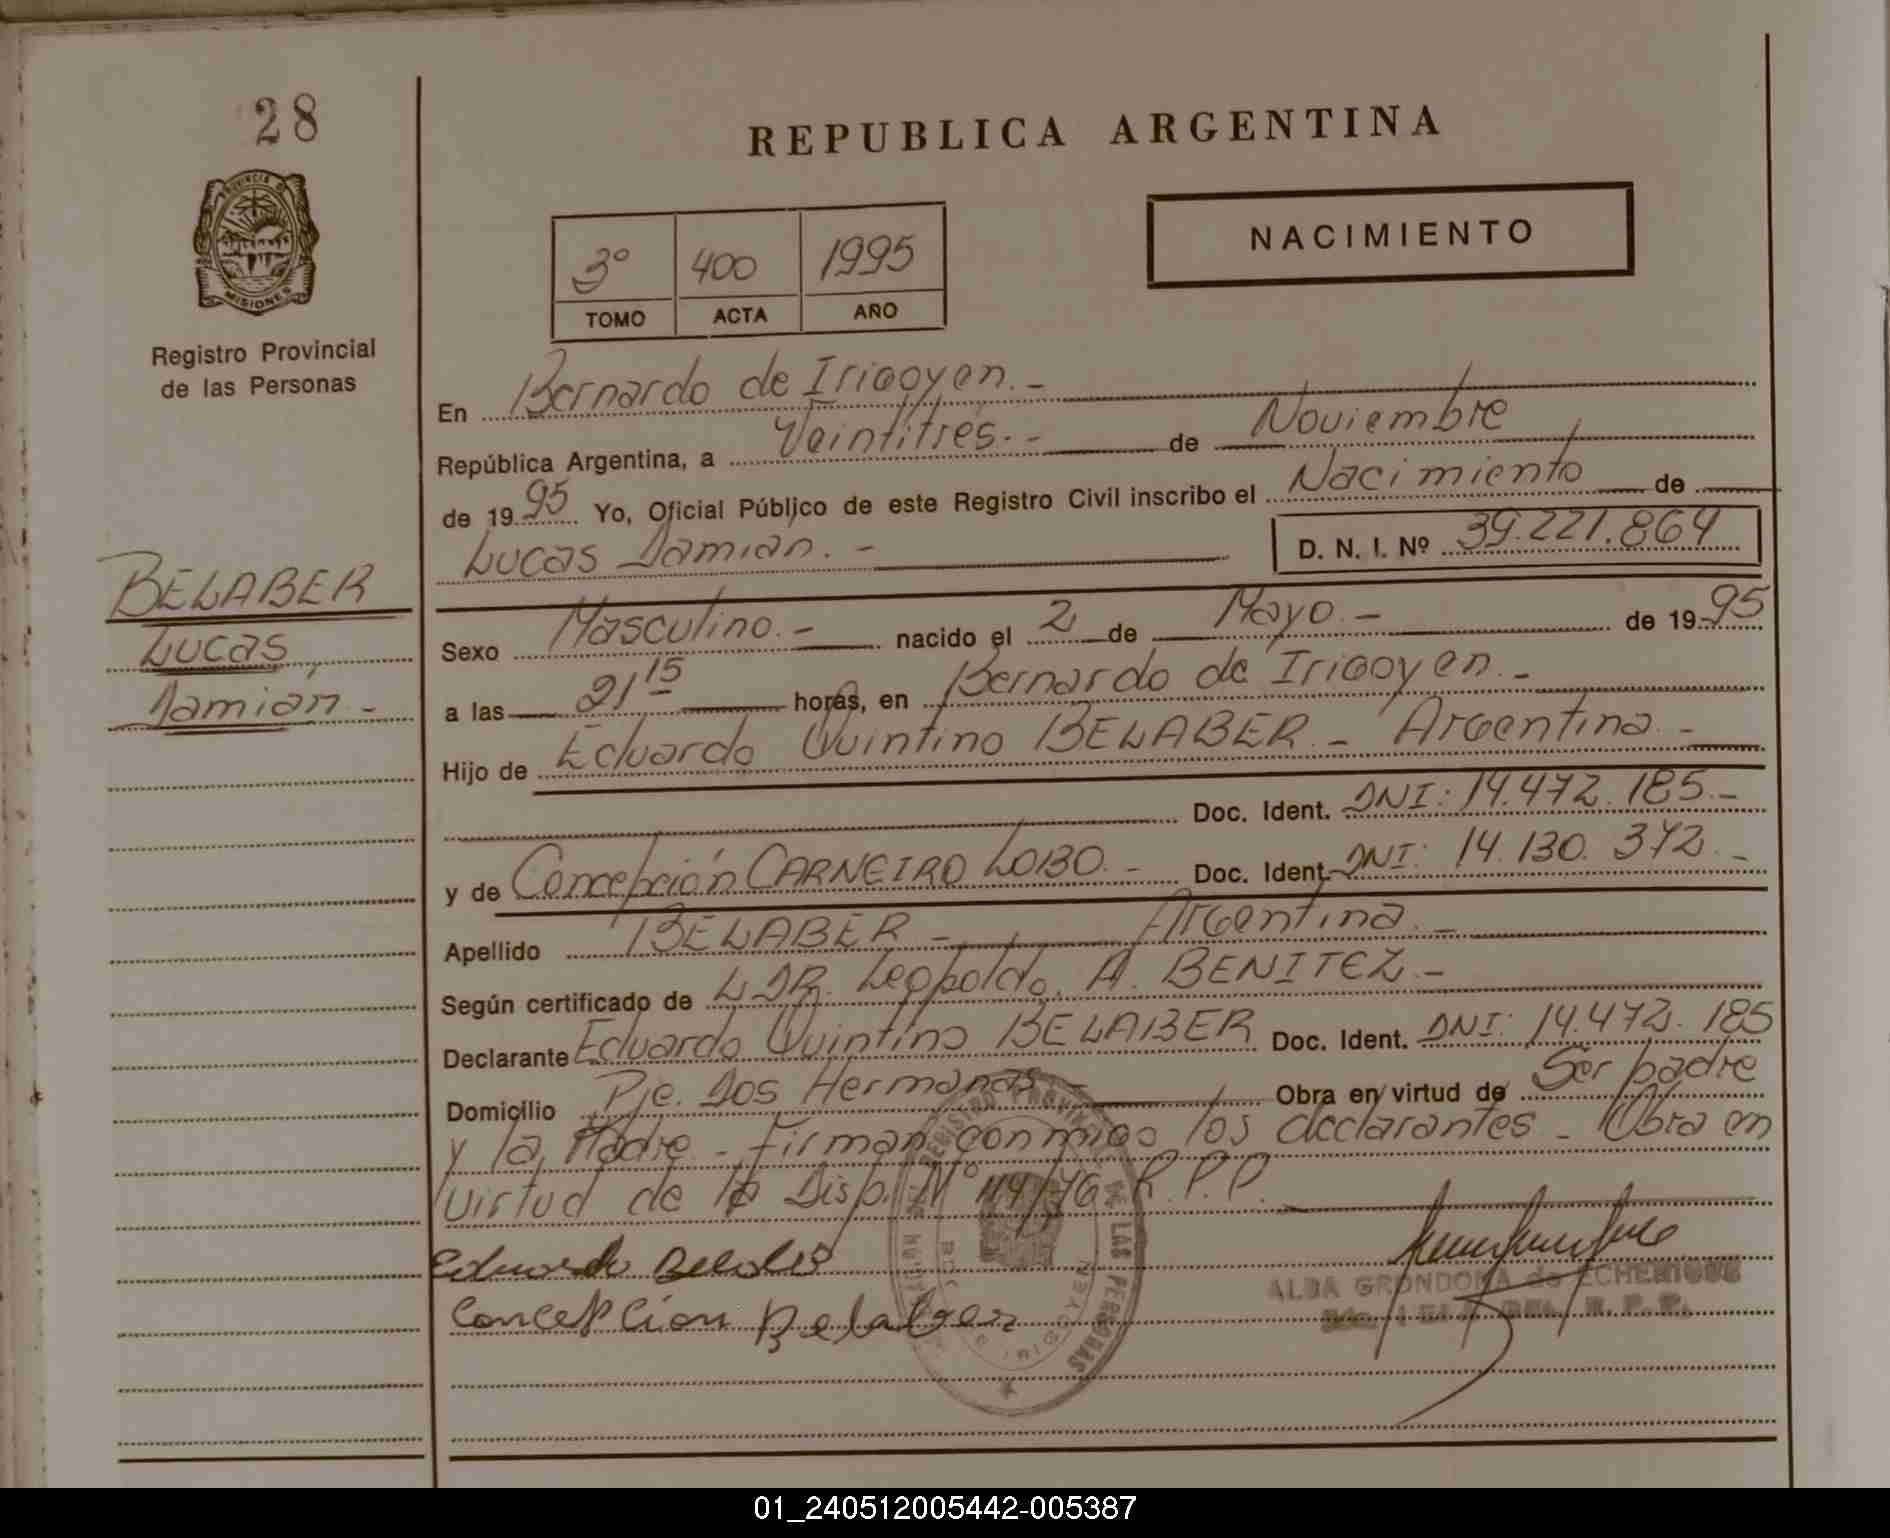 28
REPUBLICA ARGENTINA
PROVINCIA DE
MISIONES
Registro Provincial
de las Personas
3º 400 1995
TOMO ACTA AÑO
NACIMIENTO
En Bernardo de Irigoyen.-
República Argentina, a Veintitrés.- de Noviembre
de 1995 Yo, Oficial Público de este Registro Civil inscribo el Nacimiento de
Lucas Damián.- D. N. I. Nº 39.221.864
BELABER
Lucas
Damián-
Sexo Masculino.- nacido el 2 de Mayo.- de 1995
a las 21 15 horas, en Bernardo de Irigoyen.-
Hijo de Eduardo Quintino BELABER - Argentina.-
Doc. Ident. DNI: 14.472.185.-
y de Concepción CARNEIRO LOBO.- Doc. Ident. DNI: 14.130.372.-
Apellido BELABER - Argentina.-
Según certificado de Leopoldo. A. BENITEZ.-
Declarante Eduardo Quintino BELABER Doc. Ident. DNI: 14.472.185
Domicilio Pje. Dos Hermanas- Obra en virtud de Ser padre
y la Madre - Firman conmigo los declarantes - Obra en
virtud de la Disp. Nº 114/76 R.P.P.
Eduardo Belaber
Concepcion Belaber
REGISTRO PROVINCIAL DE LAS PERSONAS
ALBA GRONDONA de ECHENIQUE
01_240512005442-005387